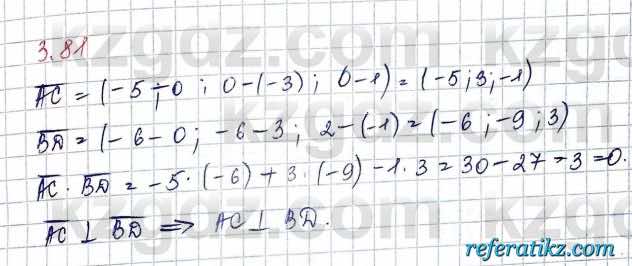 3.81
AC = (-5-0; 0-(-3); 0-1) = (-5; 3; -1)
BD = (-6-0; -6-3; 2-(-1) = (-6; -9; 3)
AC · BD = -5·(-6)+3·(-9)-1·3=30-27-3=0.
AC ⊥ BD ⇒ AC ⊥ BD.
kzgdz.com
referatikz.com